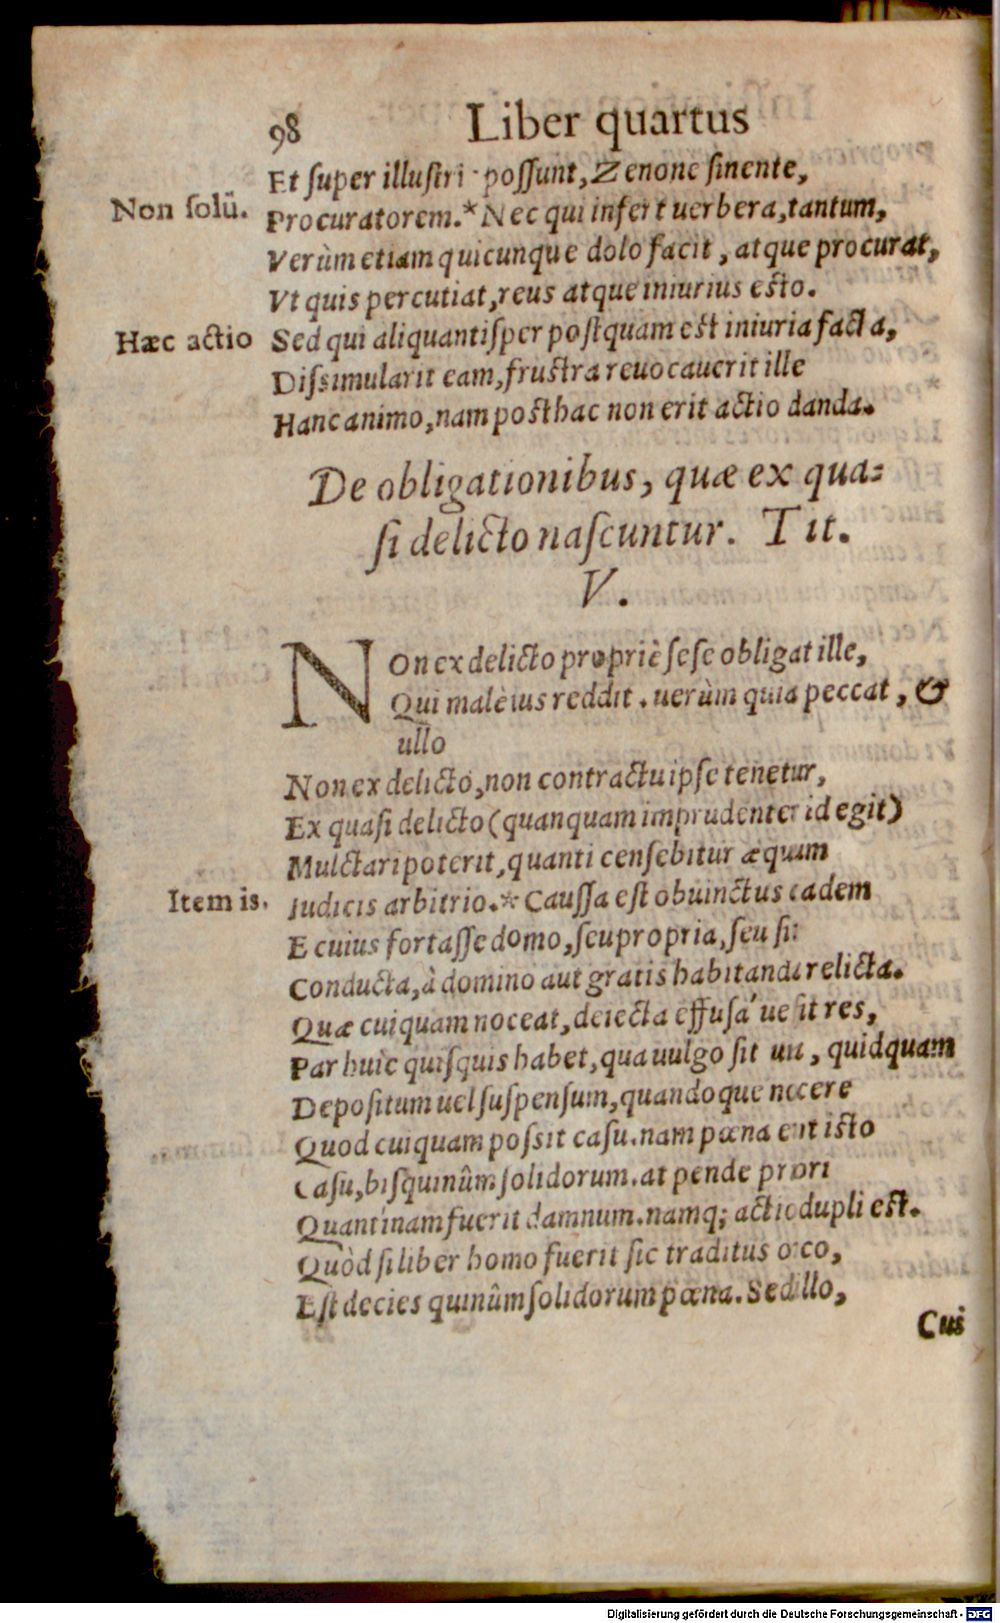 98 Liber quartus
Et ſuper illuſtri poſſunt, Zenone ſinente,
Non ſolū. Procuratorem.* Nec qui infert uerbera, tantum,
Verùm etiam quicunque dolo facit, atque procurat,
Vt quis percutiat, reus atque iniurius eſto.
Hæc actio Sed qui aliquantiſper poſtquam eſt iniuria facta,
Diſsimularit eam, fruſtra reuocauerit ille
Hanc animo, nam poſthac non erit actio danda.
De obligationibus, quæ ex qua=
ſi delicto naſcuntur. Tit.
V.
NOn ex delicto propriè ſeſe obligat ille,
Qui malè ius reddit. uerùm quia peccat, &
ullo
Non ex delicto, non contractu ipſe tenetur,
Ex quaſi delicto (quanquam imprudenter id egit)
Mulctari poterit, quanti cenſebitur æquum
Item is. Iudicis arbitrio.* Cauſſa eſt obuinctus eadem
E cuius fortaſſe domo, ſeu propria, ſeu ſit
Conducta, à domino aut gratis habitanda relicta.
Quæ cuiquam noceat, deiecta effuſa´ ue ſit res,
Par huic quiſquis habet, qua uulgo ſit uia, quidquam
Depoſitum uel ſuſpenſum, quandoque nocere
Quod cuiquam poſsit caſu. nam pœna erit iſto
Caſu, biſquinûm ſolidorum. at pende priori
Quantinam fuerit damnum. namq; actio dupli eſt.
Quòd ſi liber homo fuerit ſic traditus orco,
Eſt decies quinûm ſolidorum pœna. Sed illo,
Cui
Digitalisierung gefördert durch die Deutsche Forschungsgemeinschaft - DFG